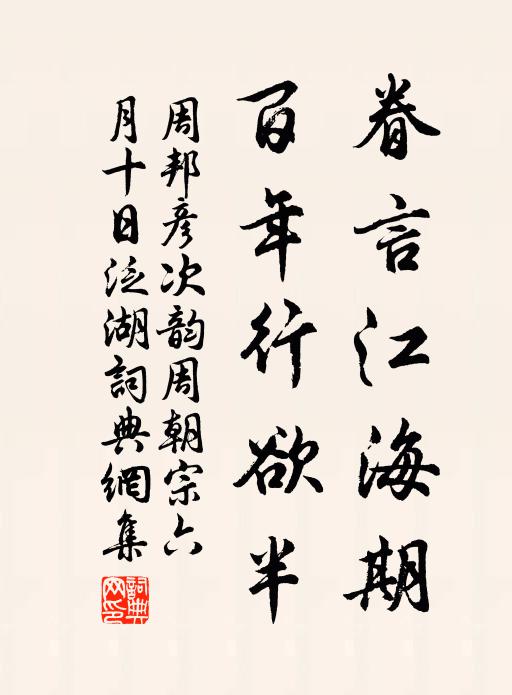 眷言江海期
百年行欲半
周邦彥次韵周朝宗六
月十日泛湖詞典網集
詞典
网印